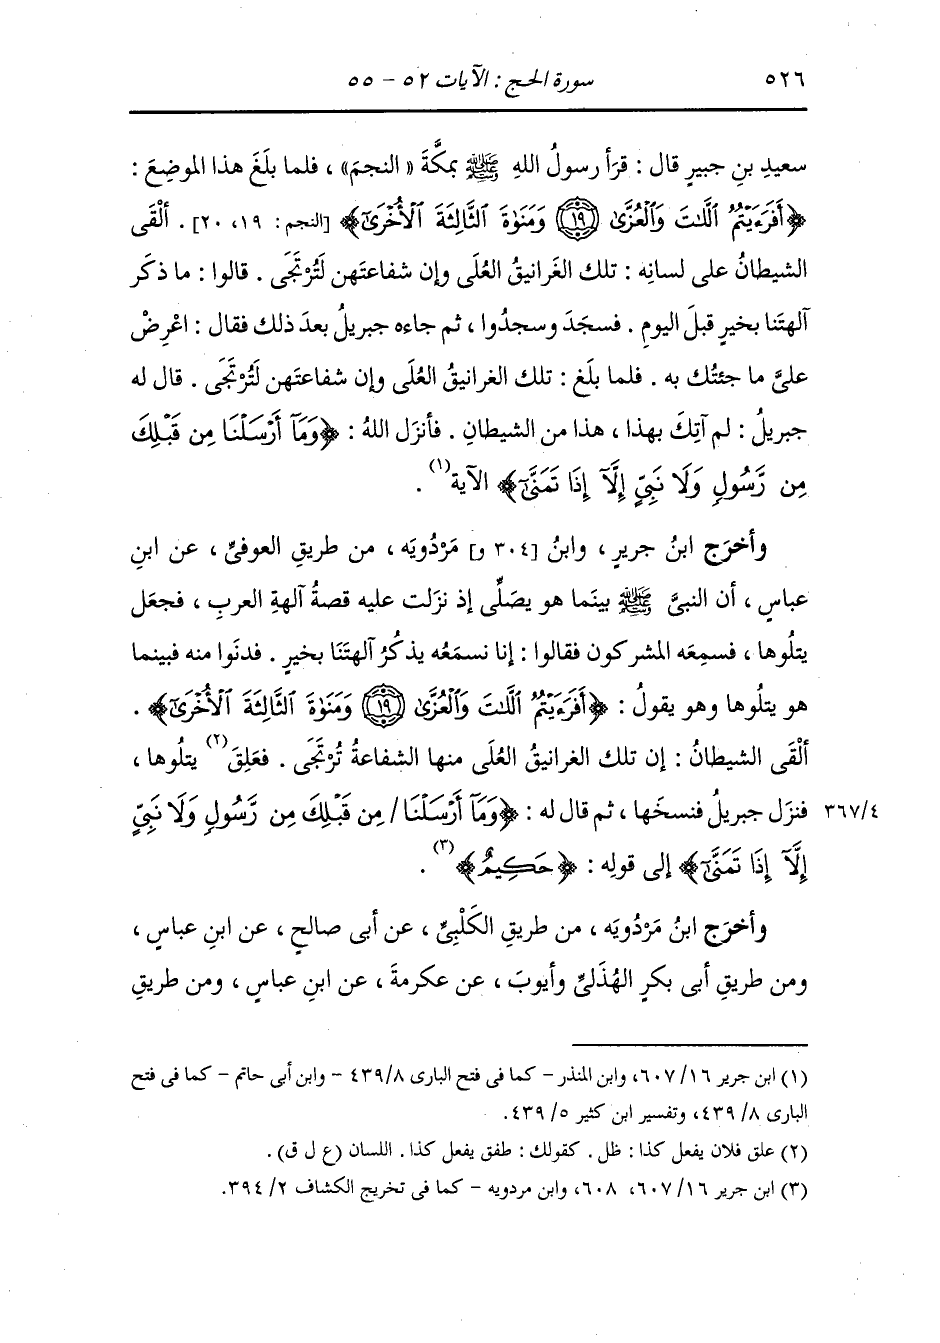 ٥٢٦ سورة الحج : الآيات ٥٢ - ٥٥
سعيدِ بنِ جبيرٍ قال : قرَأ رسولُ اللهِ ﷺ بمكَّةَ « النجمَ» ، فلما بلَغَ هذا الموضِعَ :
﴿أَفَرَءَيْتُمُ ٱللَّٰتَ وَٱلْعُزَّىٰ ١٩ وَمَنَوٰةَ ٱلثَّالِثَةَ ٱلْأُخْرَىٰٓ﴾ [النجم : ١٩، ٢٠] . ألْقَى
الشيطانُ على لسانِه : تلك الغَرانيقُ العُلَى وإن شفاعتَهن لَتُرْتَجَى . قالوا : ما ذكَر
آلهتَنا بخيرٍ قبلَ اليومِ . فسجَدَ وسجدُوا ، ثم جاءه جبريلُ بعدَ ذلك فقال : اعْرِضْ
علىَّ ما جئتُك به . فلما بلَغ : تلك الغرانيقُ العُلَى وإن شفاعتَهن لَتُرْتَجَى . قال له
جبريلُ : لم آتِكَ بهذا ، هذا من الشيطانِ . فأنزَل اللهُ : ﴿وَمَآ أَرْسَلْنَا مِن قَبْلِكَ
مِن رَّسُولٍ وَلَا نَبِيٍّ إِلَّآ إِذَا تَمَنَّىٰٓ﴾ الآية(١) .
وأخرَج ابنُ جريرٍ ، وابنُ [٣٠٤ و] مَرْدُويَه ، من طريقِ العوفىِّ ، عن ابنِ
عباسٍ ، أن النبىَّ ﷺ بينَما هو يصَلِّى إذ نزَلت عليه قصةُ آلهةِ العربِ ، فجعَل
يتلُوها ، فسمِعَه المشركون فقالوا : إنا نسمَعُه يذكُرُ آلهتَنَا بخيرٍ . فدنَوا منه فبينما
هو يتلُوها وهو يقولُ : ﴿أَفَرَءَيْتُمُ ٱللَّٰتَ وَٱلْعُزَّىٰ ١٩ وَمَنَوٰةَ ٱلثَّالِثَةَ ٱلْأُخْرَىٰٓ﴾ .
ألْقَى الشيطانُ : إن تلك الغرانيقُ العُلَى منها الشفاعةُ تُرْتَجَى . فعَلِقَ(٢) يتلُوها ،
فنزَل جبريلُ فنسخَها ، ثم قال له : ﴿وَمَآ أَرْسَلْنَا / مِن قَبْلِكَ مِن رَّسُولٍ وَلَا نَبِيٍّ ٣٦٧/٤
إِلَّآ إِذَا تَمَنَّىٰٓ﴾ إلى قولِه : ﴿حَكِيمٌ﴾(٣) .
وأخرَج ابنُ مَرْدُويَه ، من طريقِ الكَلْبِىِّ ، عن أبى صالحٍ ، عن ابنِ عباسٍ ،
ومن طريقِ أبى بكرٍ الهُذَلىِّ وأيوبَ ، عن عكرمةَ ، عن ابنِ عباسٍ ، ومن طريقِ
(١) ابن جرير ١٦/ ٦٠٧، وابن المنذر - كما فى فتح البارى ٨/ ٤٣٩ - وابن أبى حاتم - كما فى فتح
البارى ٨/ ٤٣٩، وتفسير ابن كثير ٥/ ٤٣٩.
(٢) علق فلان يفعل كذا : ظل . كقولك : طفق يفعل كذا . اللسان (ع ل ق) .
(٣) ابن جرير ١٦/ ٦٠٧، ٦٠٨، وابن مردويه - كما فى تخريج الكشاف ٢/ ٣٩٤.